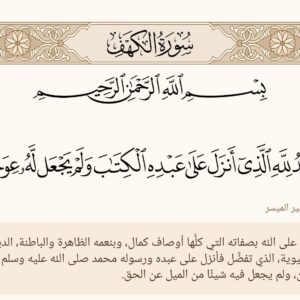 سُورَةُ الكَهْفِ
بِسْمِ اللَّهِ الرَّحْمَٰنِ الرَّحِيمِ
لِلَّهِ الَّذِي أَنزَلَ عَلَىٰ عَبْدِهِ الْكِتَابَ وَلَمْ يَجْعَل لَّهُ
الميسر
على الله بصفاته التي كلُّها أوصاف كمال، وبنعمه الظاهرة والباطنة،
الذي تفضَّل فأنزل على عبده ورسوله محمد صلى الله عليه وسلم
ولم يجعل فيه شيئًا من الميل عن الحق.